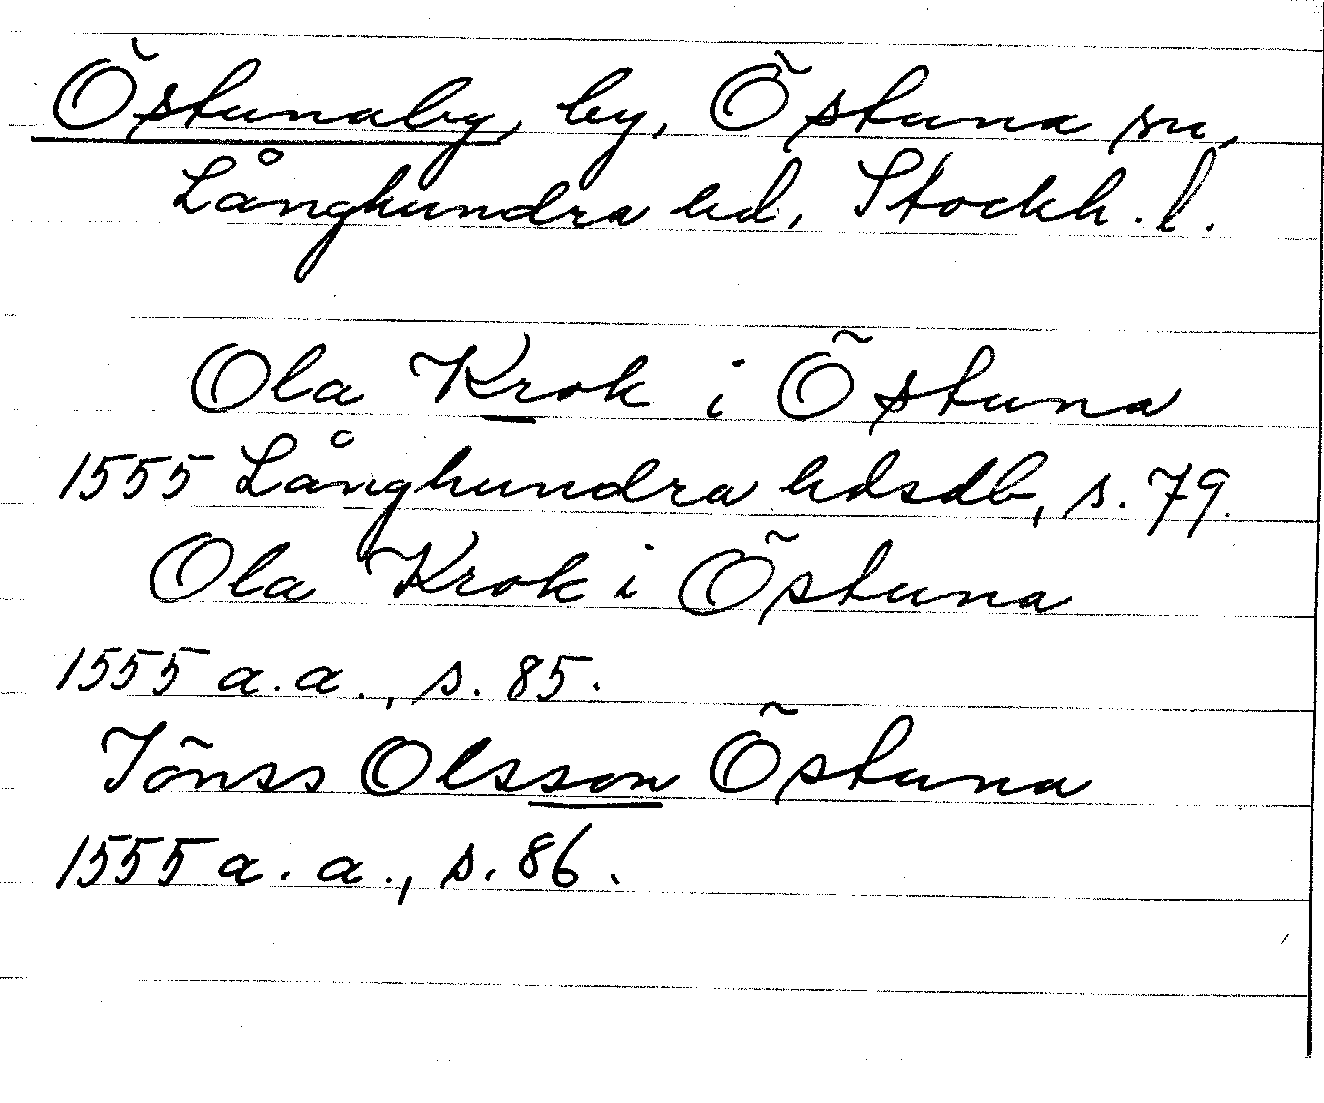 Östunaby, by, Östuna sn,
Långhundra hd, Stockh. l.
Ola Krok i Östuna
1555 Långhundra hdsdb, s. 79.
Ola Krok i Östuna
1555 a. a., s. 85.
Jönss Olsson Östuna
1555 a. a., s. 86.